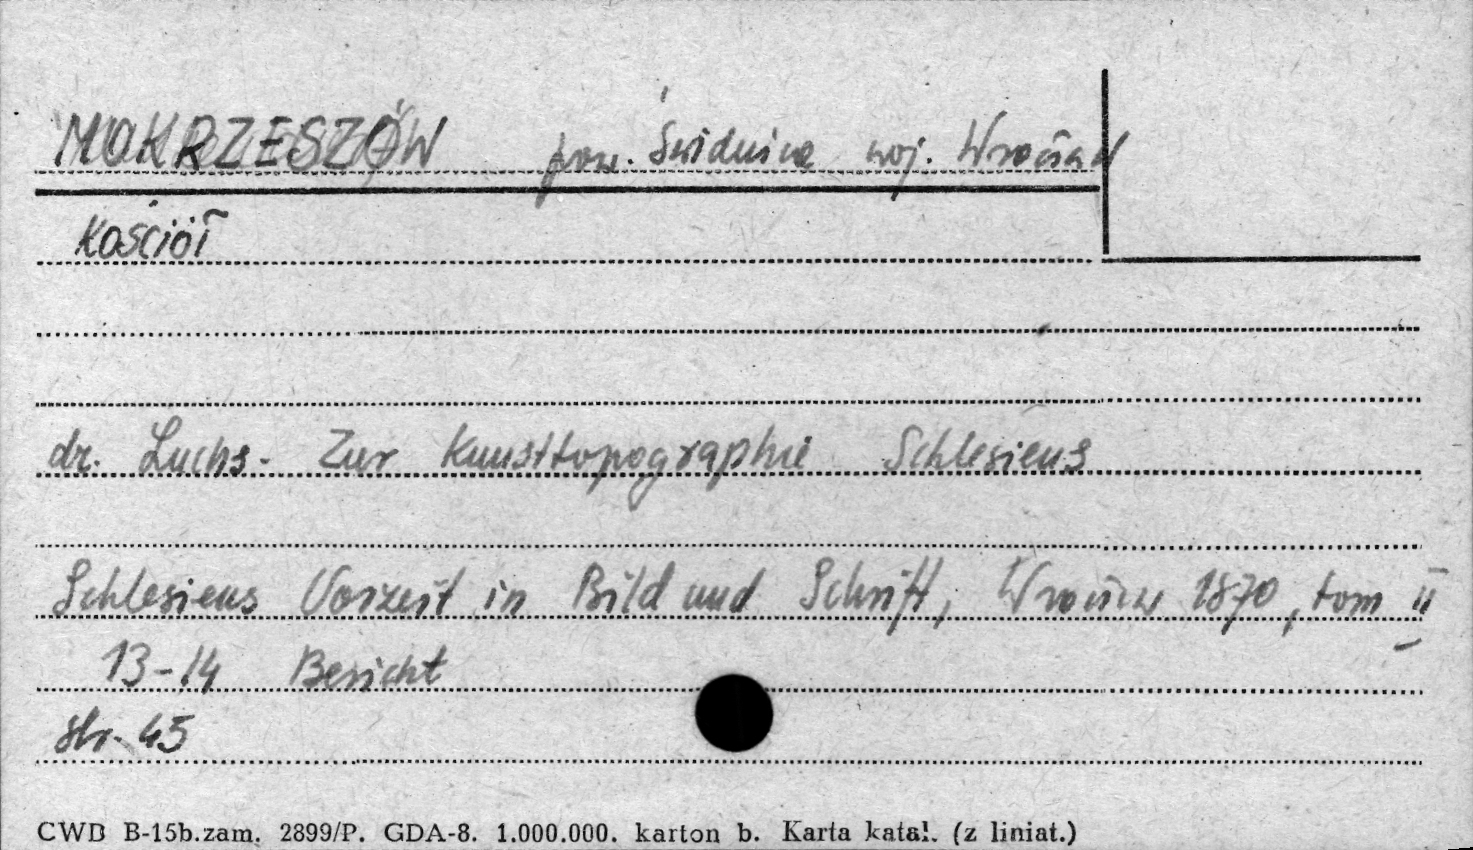 MOKRZESZÓW pow. Świdnica woj. Wrocław
Kościół
dr. Luchs - Zur Kunsttopographie Schlesiens
Schlesiens Vorzeit in Bild und Schrift, Wrocław 1870, tom II
13-14 Bericht
str. 45
CWD B-15b.zam. 2899/P. GDA-8. 1.000.000. karton b. Karta katal. (z liniat.)